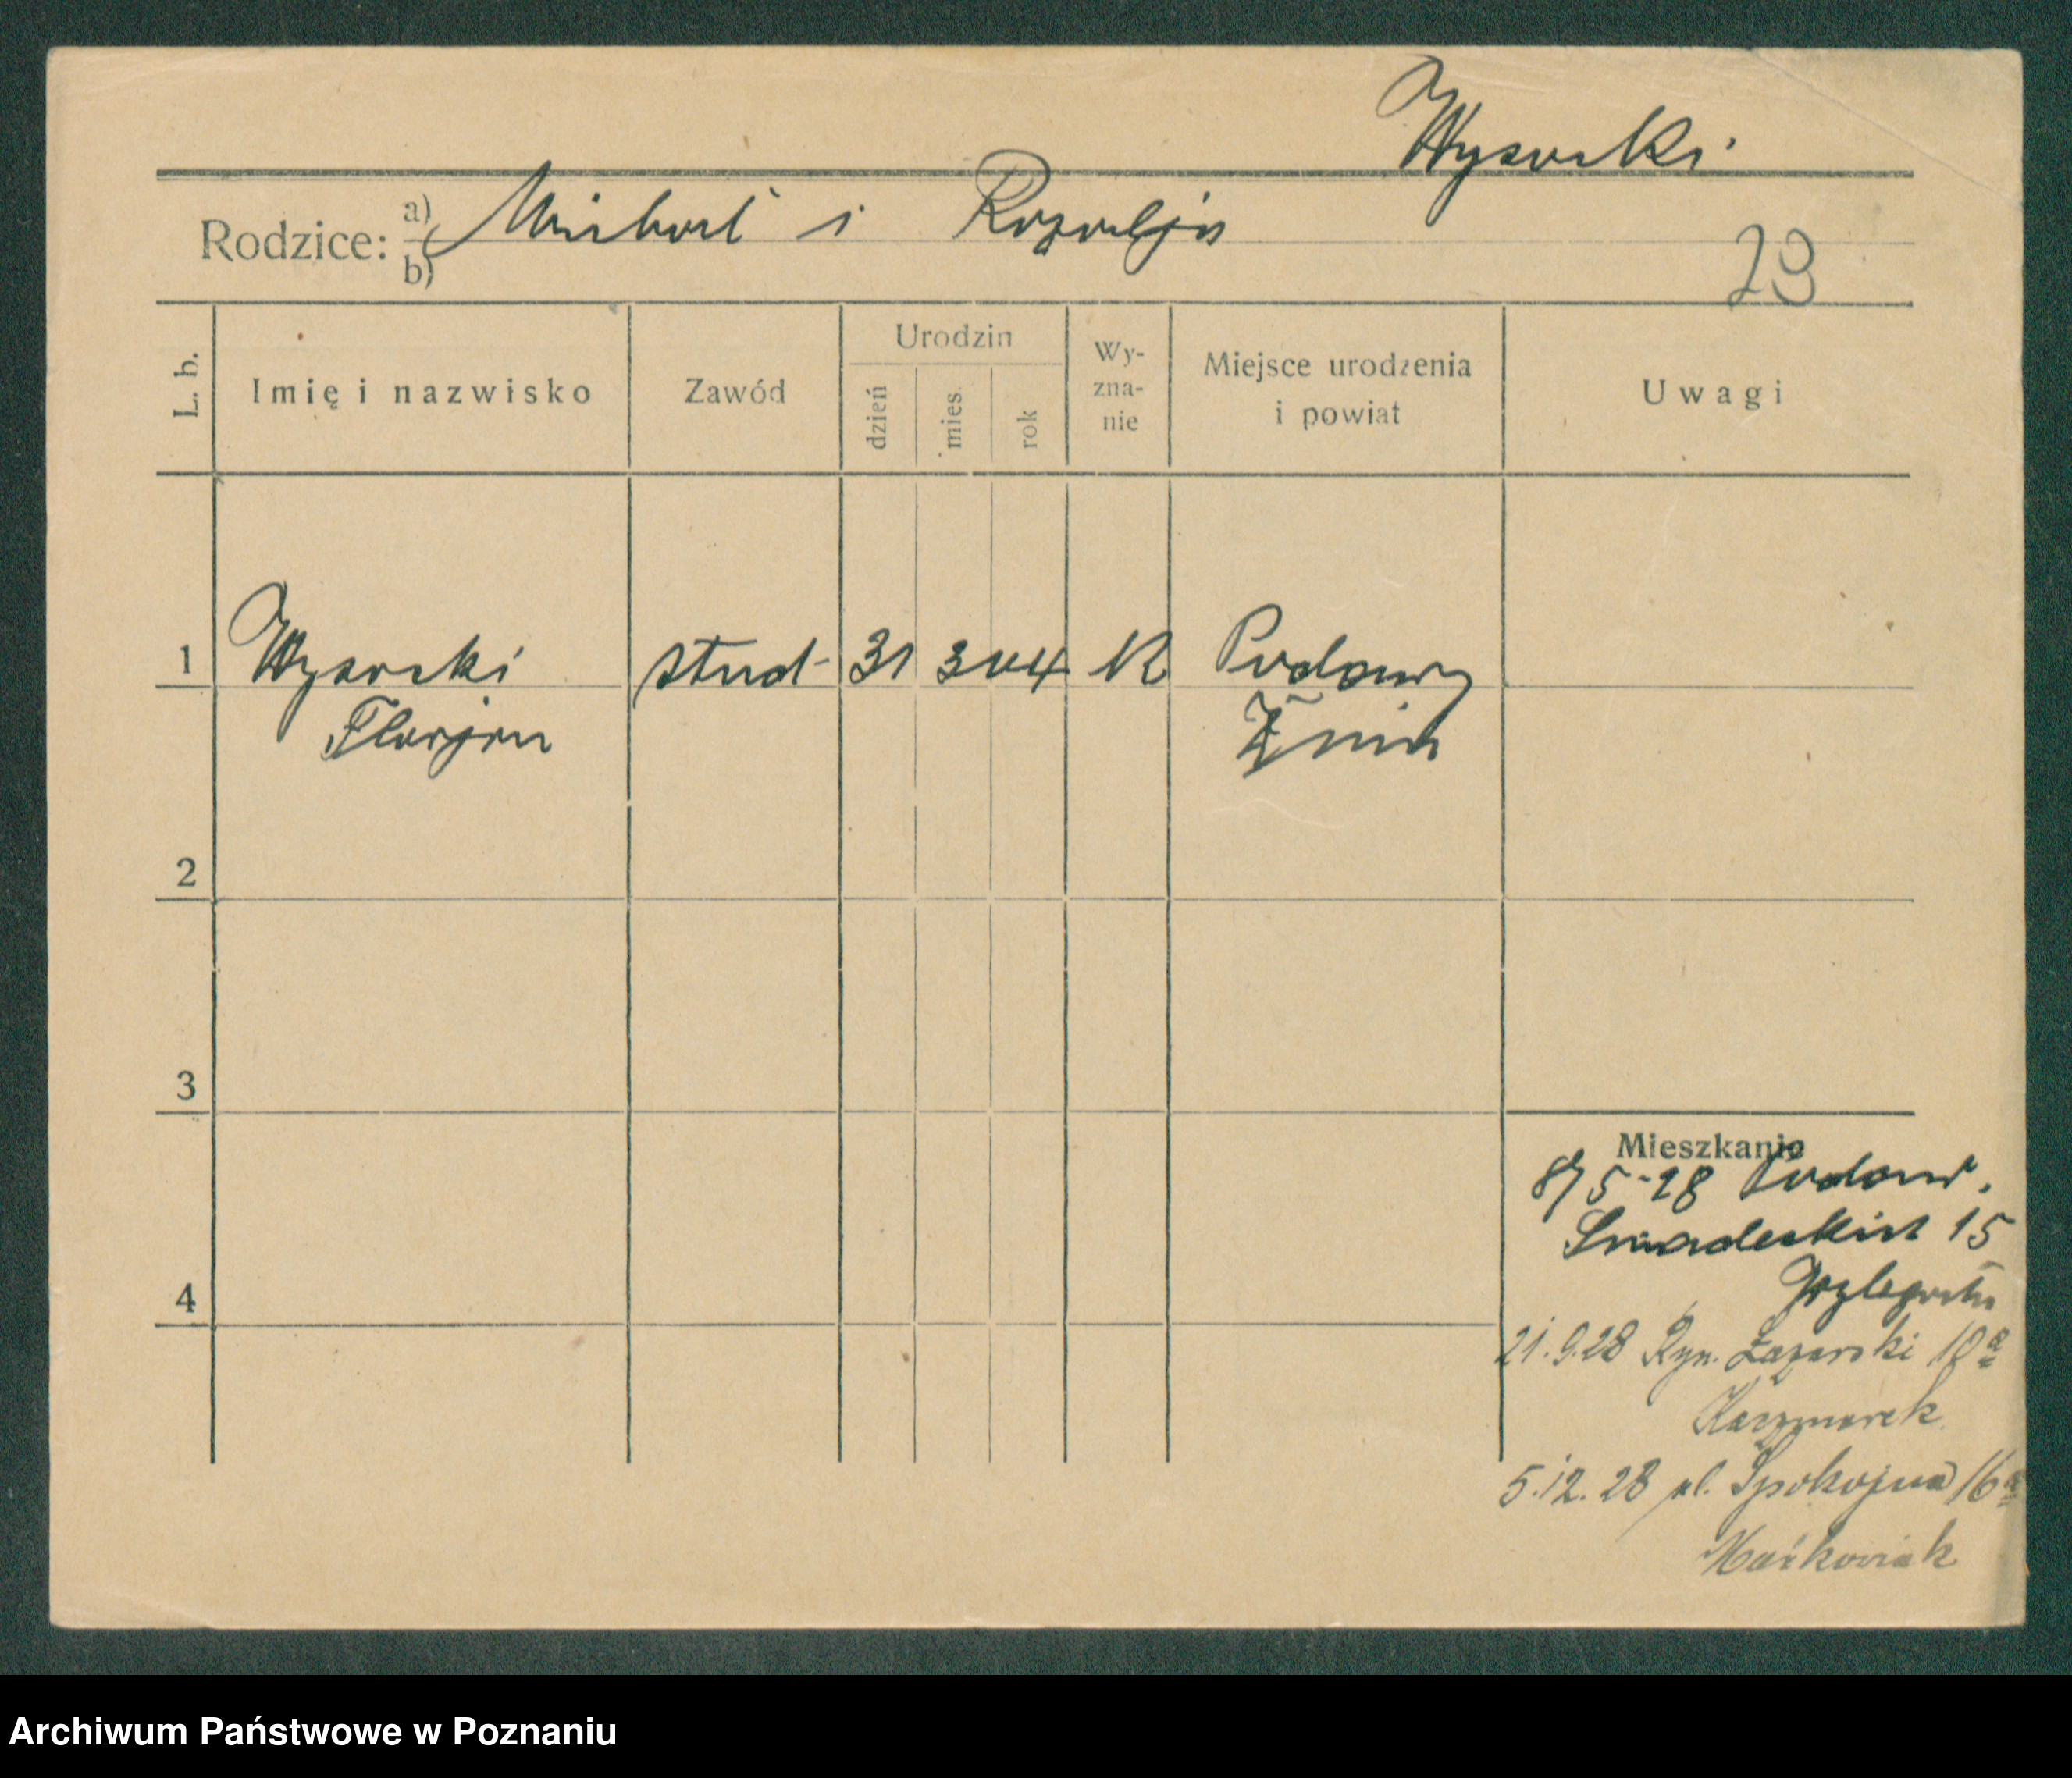 Wysocki
Rodzice: a) Michał i Rozalja
b)
23
L. b.
Imię i nazwisko
Zawód
Urodzin
dzień
mies.
rok
Wy-
zna-
nie
Miejsce urodzenia
i powiat
Uwagi
1 Wysocki stud- 31 3 04 K Podawy
Florjan Żnin
2
3
4
Mieszkanie
8/5-28 Podaw.
Śniadeckich 15
21.9.28 Ryn. Łazarski 18a
Kaczmarek
5.12.28 ul. Spokojna 16a
Maćkowiak
Archiwum Państwowe w Poznaniu